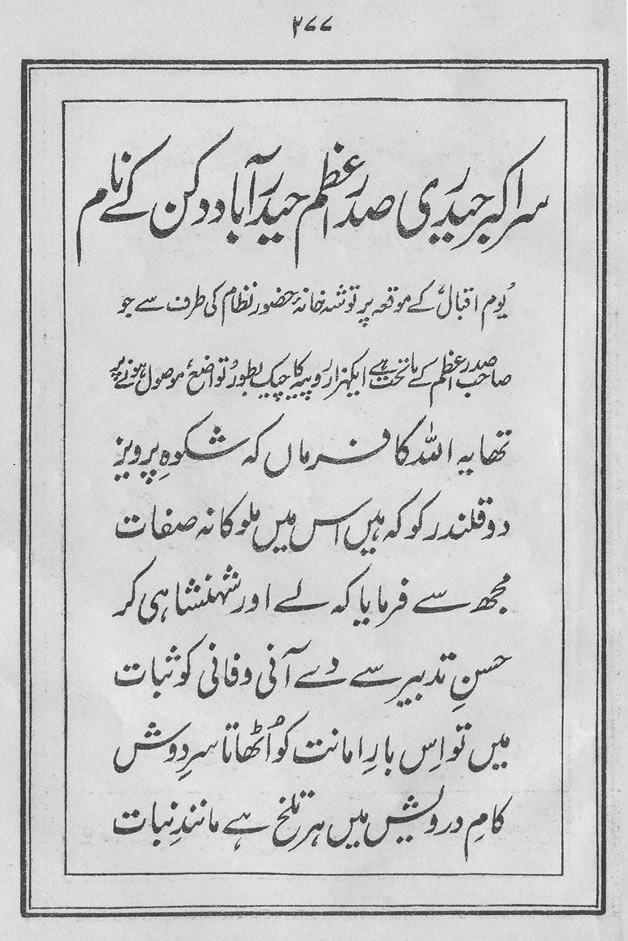 ۲۷۷
سر اکبر حیدری صدر اعظم حیدر آباد دکن کے نام
'یوم اقبال' کے موقعہ پر توشہ خانۂ حضور نظام کی طرف سے جو
صاحب صدر اعظم کے ماتحت ہے ایکہزار روپیہ کا چیک بطور 'تواضع' موصول ہونے پر
تھا یہ اللہ کا فرماں کہ شکوہِ پرویز
دو قلندر کو کہ ہیں اس میں ملوکانہ صفات
مجھ سے فرمایا کہ لے اور شہنشاہی کر
حسنِ تدبیر سے دے آنی و فانی کو ثبات
میں تو اِس بارِ امانت کو اُٹھاتا سرِ دوش
کامِ درویش میں ہر تلخ ہے مانندِ نبات